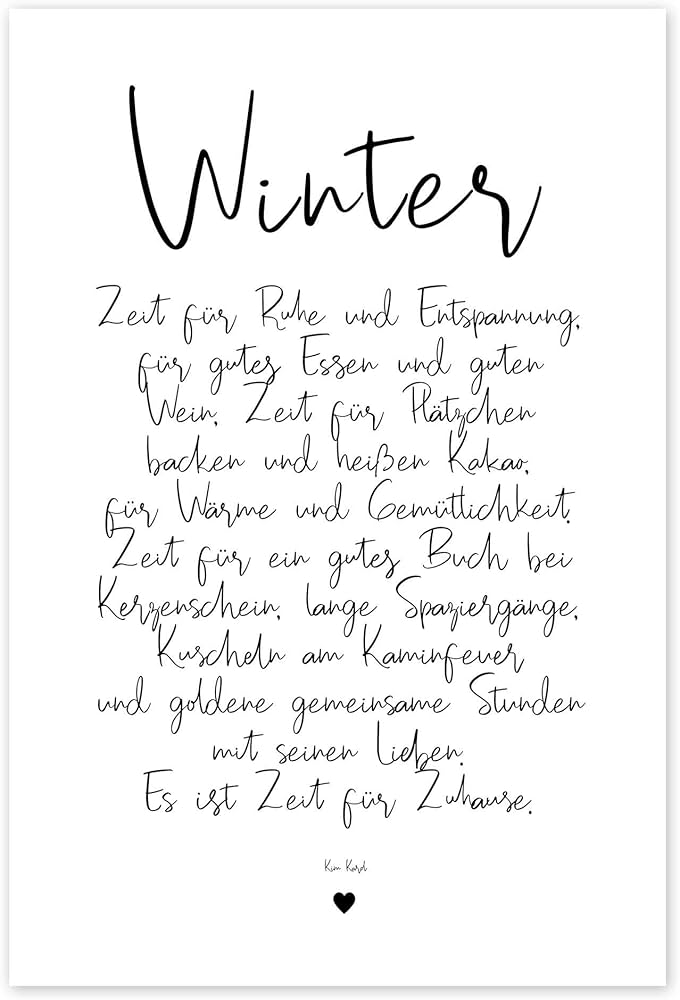 Winter
Zeit für Ruhe und Entspannung,
für gutes Essen und guten
Wein, Zeit für Plätzchen
backen und heißen Kakao,
für Wärme und Gemütlichkeit,
Zeit für ein gutes Buch bei
Kerzenschein, lange Spaziergänge,
Kuscheln am Kaminfeuer
und goldene gemeinsame Stunden
mit seinen Lieben.
Es ist Zeit für Zuhause.
Kim Karol